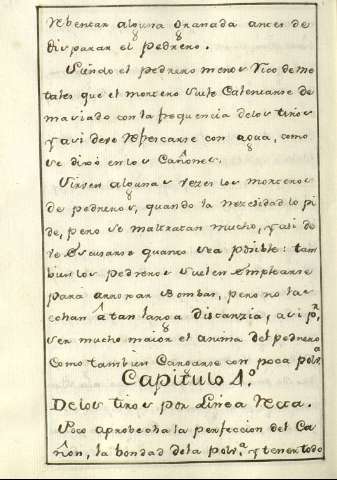 Rebentar alguna Granada antes de
disparar el Pedrero.
Siendo el pedrero menos rico de me
tales que el mortero suele Calentarse de
maciado con la frequencia delos tiros
y asi deve Refrescarse con agua, como
se dixó en los Cañones.
Sirven algunas vezes los morteros
de pedreros, quando la nezesidad lo pi
de, pero se maltratan mucho, y asi de
ve Escusarse quanto sea posible: tam
bien los Pedreros suelen Emplearse
para arrojar Bombas, pero no las
echan â tan larga Distanzia, asi pr.
ser mucho maior el anima del pedrero
Como tambien Cargarse con poca polva.
Capitulo 4.º
Delos tiros por Linea Recta.
Poco aprobecha la perfeccion del Ca
ñon, la bondad dela polva. y tener todo